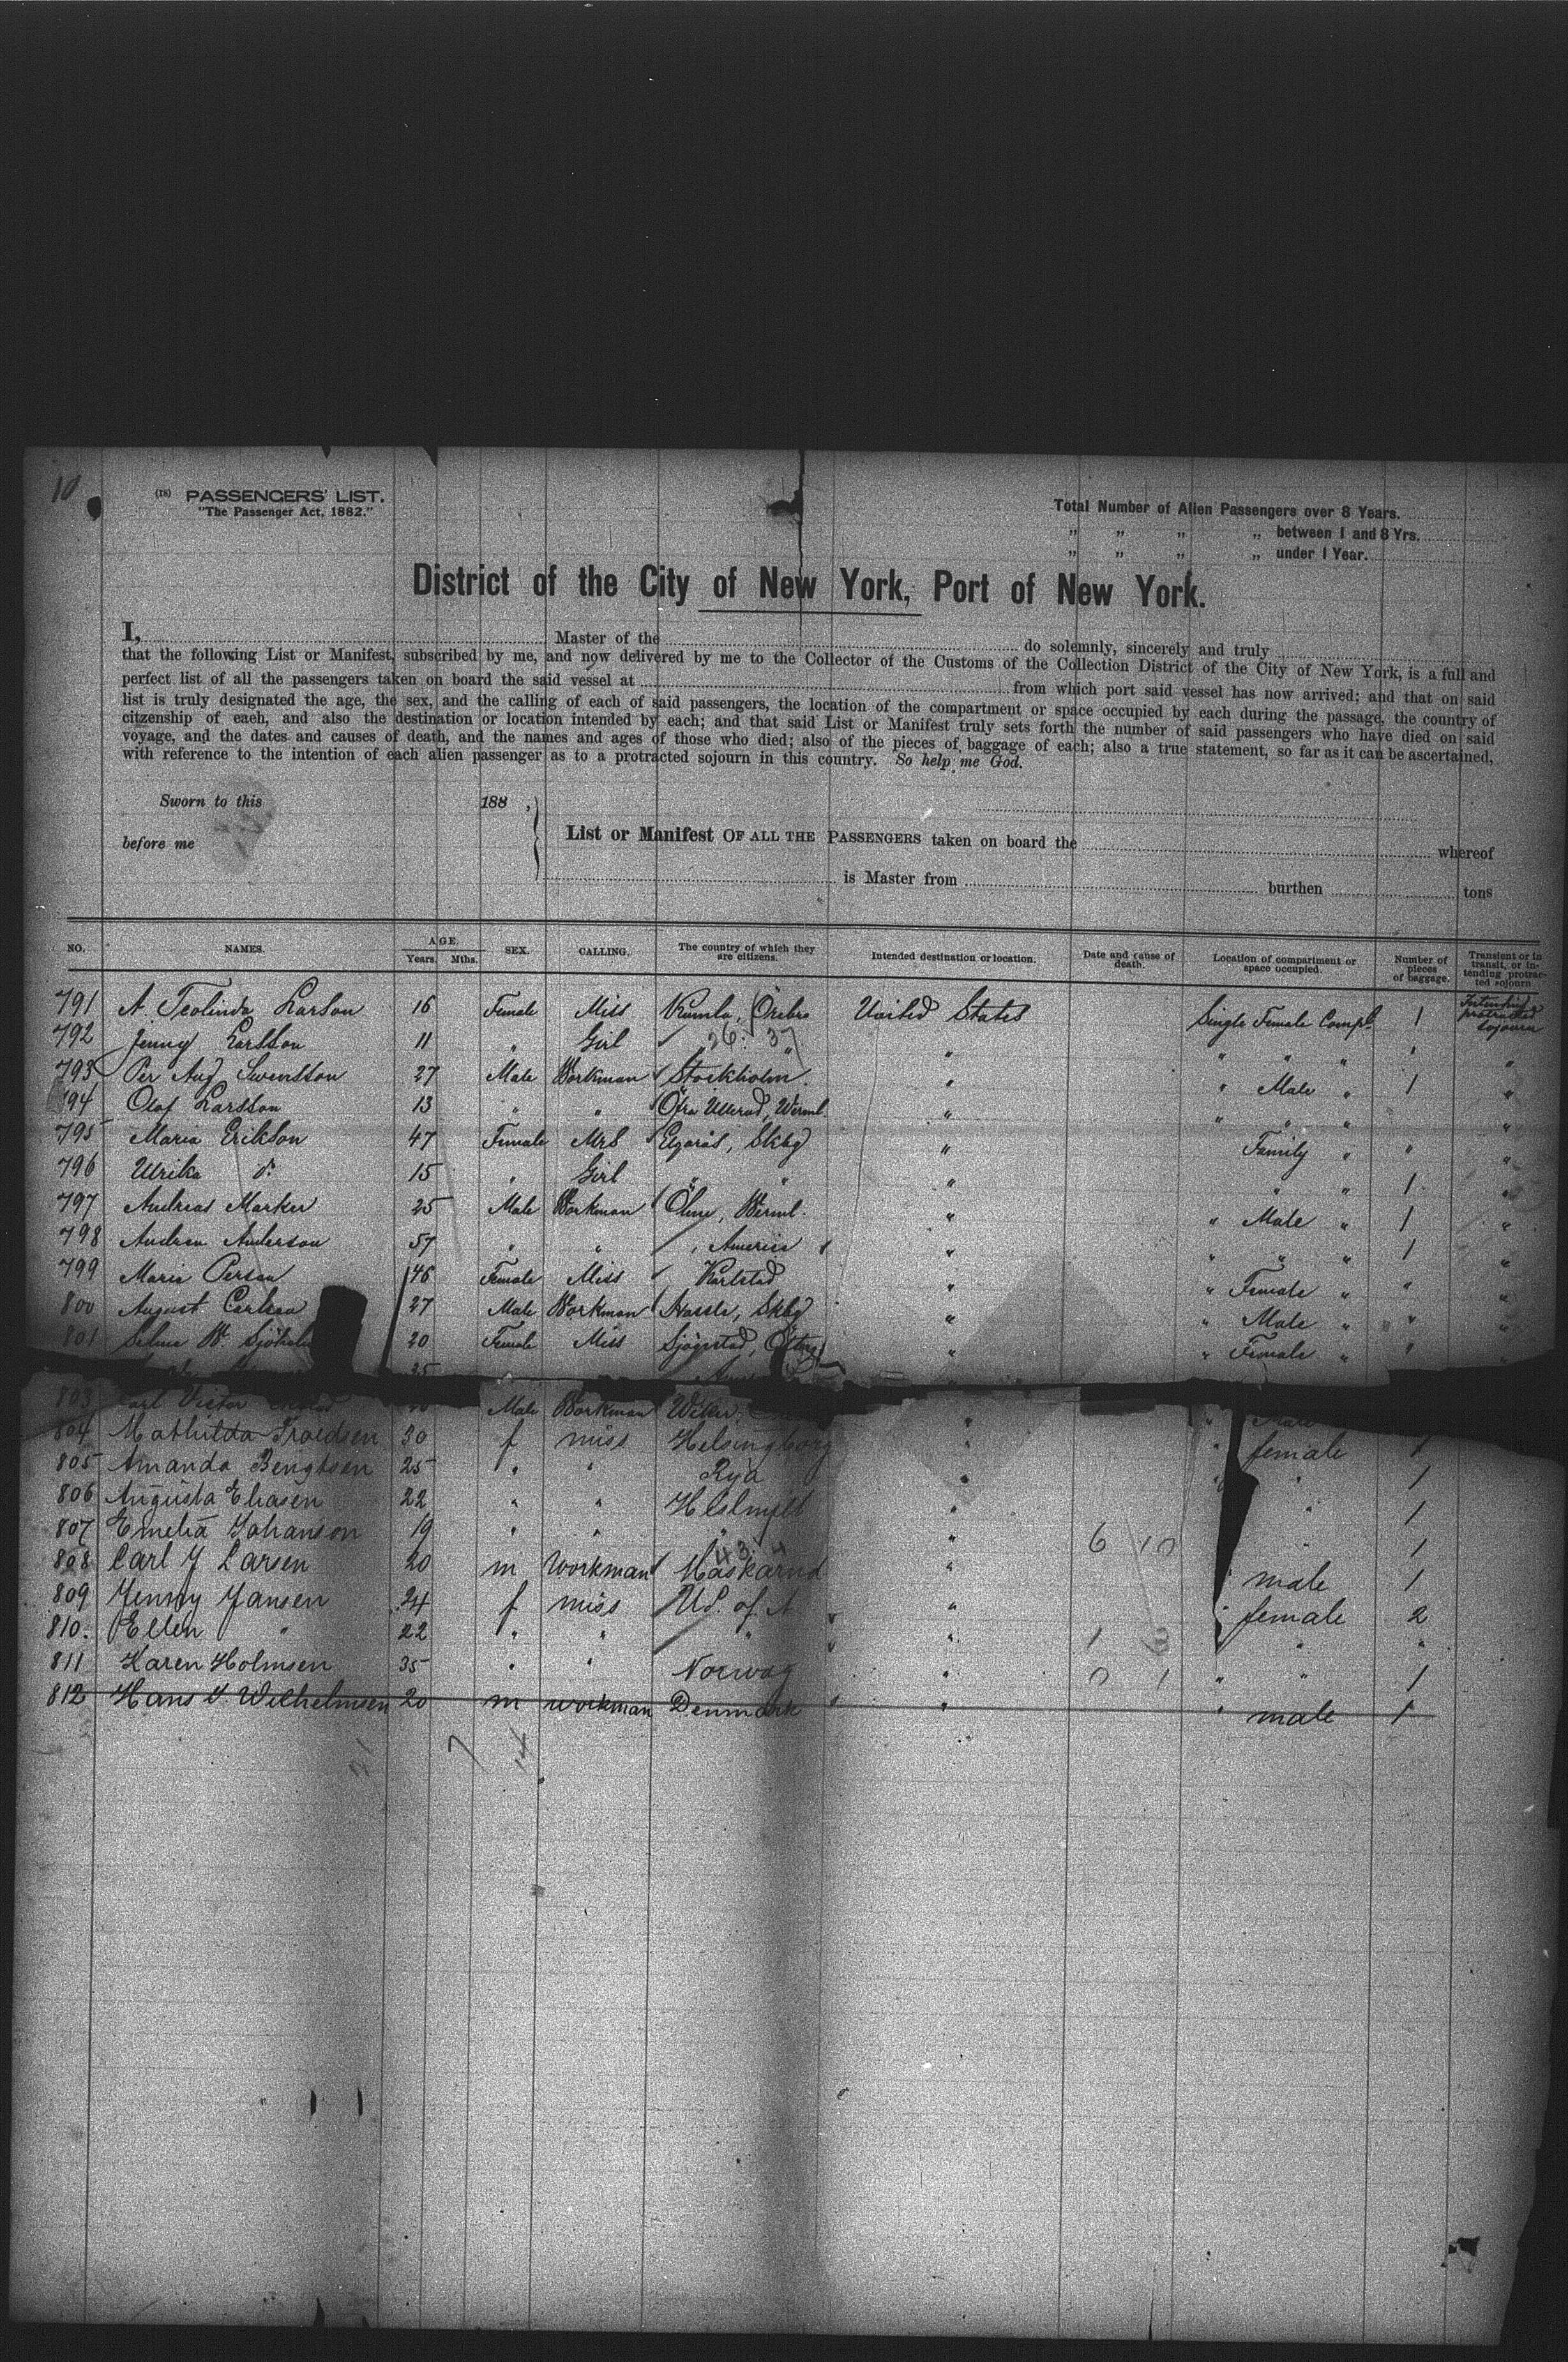 10
(18) PASSENGERS' LIST.
"The Passenger Act, 1882."
Total Number of Alien Passengers over 8 Years.
„ „ „ „ between 1 and 8 Yrs.
„ „ „ „ under 1 Year.
District of the City of New York, Port of New York.
I, Master of the do solemnly, sincerely and truly
that the following List or Manifest, subscribed by me, and now delivered by me to the Collector of the Customs of the Collection District of the City of New York, is a full and
perfect list of all the passengers taken on board the said vessel at from which port said vessel has now arrived; and that on said
list is truly designated the age, the sex, and the calling of each of said passengers, the location of the compartment or space occupied by each during the passage, the country of
citzenship of eaeh, and also the destination or location intended by each; and that said List or Manifest truly sets forth the number of said passengers who have died on said
voyage, and the dates and causes of death, and the names and ages of those who died; also of the pieces of baggage of each; also a true statement, so far as it can be ascertained,
with reference to the intention of each alien passenger as to a protracted sojourn in this country. So help me God.
Sworn to this 188 ,
before me
List or Manifest OF ALL THE PASSENGERS taken on board the whereof
is Master from burthen tons
NO. NAMES. AGE. Years. Mths. SEX. CALLING. The country of which they are citizens. Intended destination or location. Date and cause of death. Location of compartment or space occupied. Number of pieces of baggage. Transient or in transit, or intending protracted sojourn
791 A. Teolinda Larson 16 Female Miss Kumla, Örebro United States Single Female Compt. 1 Intending protracted sojourn
792 Jenny Larsson 11 " Girl " " " " " " "
26. 37
793 Per Aug Swensson 27 Male Workman Stockholm. " " Male " 1 "
794 Olof Larsson 13 " " Öfra Ullerud, Werml. " " " " "
795 Maria Erikson 47 Female Mrs Elgarås, Skbg " Family " " "
796 Ulrika do 15 " Girl " " " " " 1 "
797 Andreas Marker 25 Male Workman Ölme, Werml. " " Male " 1 "
798 Andrew Anderson 57 " " America " " " " 1 "
799 Maria Person 46 Female Miss Karlstad " " Female " " "
800 August Carlson 27 Male Workman Hassle, Skbg " " Male " " "
801 Selma W. 20 Female Miss Sjögestad, " " Female " " "
35
803 Carl Victor Male Workman " " Male
804 Mathilda Troedsen 30 f miss Helsingborg " " female 1
805 Amanda Bengtsen 25 " " Rya " " " 1
806 Augusta Eliasen 22 " " " " 1
807 Emelia Johanson 19 " " " " 6 10 " 1
43. 4
808 Carl J Larsen 20 m workman Maskarud " male 1
809 Jenny Jansen 24 f miss Ud. of A " " female 2
810. Ellen " 22 " " " " " 1 3 " "
811 Karen Holmsen 35 " " Norway " 0 1 " " 1
812 Hans J. Wilhelmsen 20 m workman Denmark " " " male 1
21 7 14